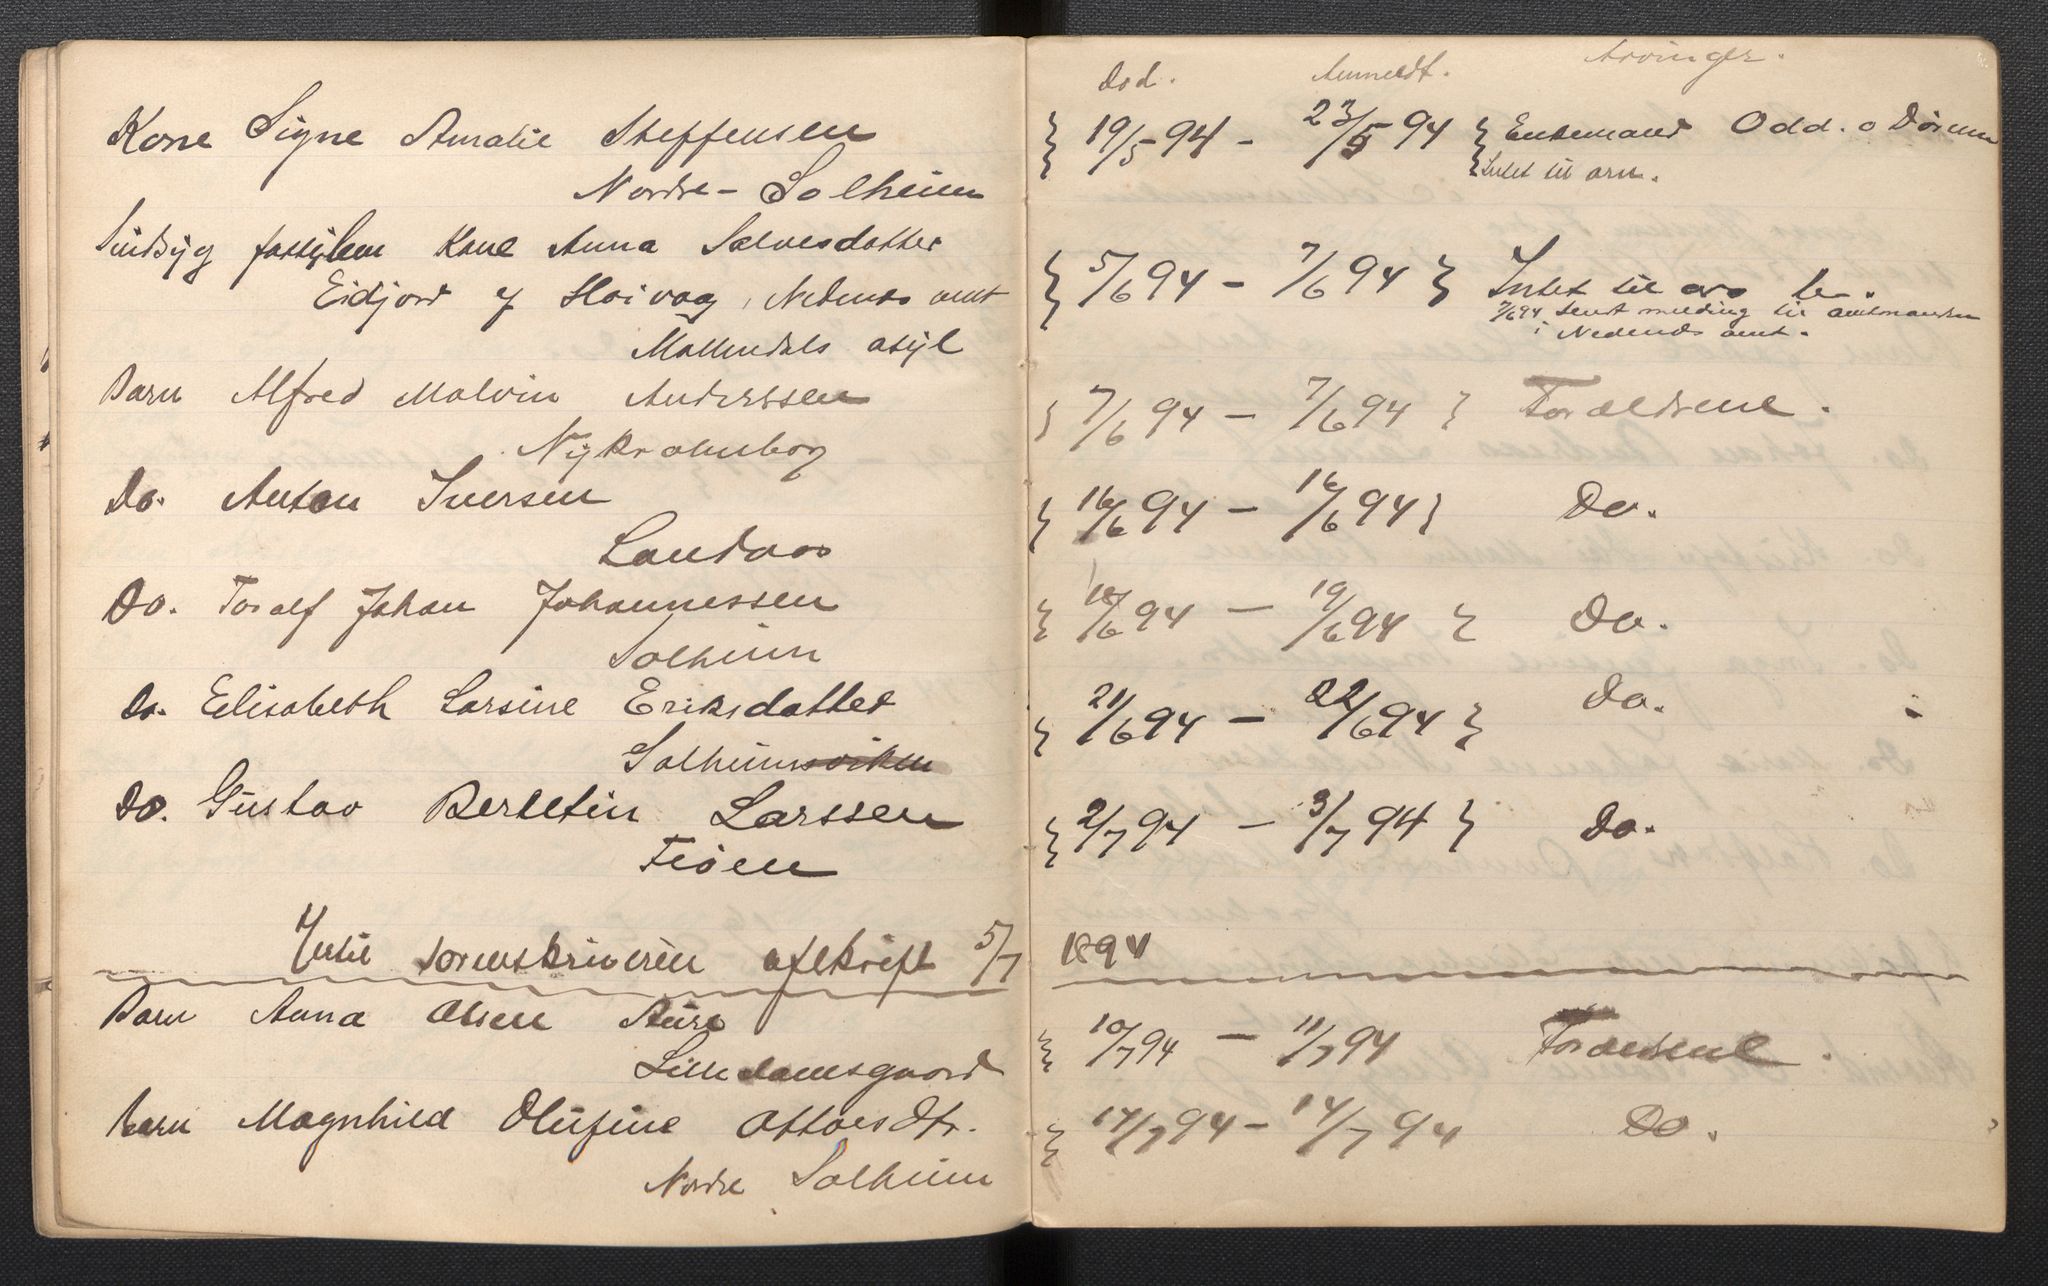 Død. Anmeldt. Arvinger.
Kone Signe Amalie Steffensen 19/5 94 - 23/5 94 Enkemand Odd. o
Nordre - Solheim Intet til arv.
Sindsyg Kone Anna Salvesdatter 5/6 94 - 7/6 94 Intet til arv
Eidjord af Høivag, Nedenes amt 7/6 94 sendt melding til amtmanden
i Nedenæs amt.
Møllendals asyl
Barn Alfred Malvin Anderssen 7/6 94 - 7/6 94 Forældrene.
Nykrohnborg
Do. Anton Iversen 16/6 94 - 16/6 94 Do.
Landaas
Do. Toralf Johan Johannessen 18/6 94 - 19/6 94 Do.
Solheim
Do. Elisabeth Larsine Eriksdatter 21/6 94 - 22/6 94 Do.
Solheimsviken
Do. Gustav Bertetin Larssen 2/7 94 - 3/7 94 Do.
Fløen
Hertil sorenskriveren afskrift 5/7 1894
Barn Anna Olsen 10/7 94 - 11/7 94 Forældrene.
Lille damsgaard
Barn Magnhild Olufine Ottoesdtr. 14/7 94 - 14/7 94 Do.
Nordre Solheim